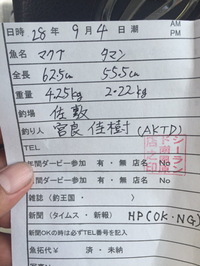 日時 28年 9月 4日 潮 AM PM
魚名 マクブ タマン
全長 62.5cm 55.5cm
重量 4.25kg 2.22kg
釣場 佐敷
釣り人 宮良 佳樹 (AKTD)
TEL
年間ダービー参加 有・無 店名 No
年間ダービー参加 有・無 店名 No
雑誌(釣王国・ )
新聞(タイムス・新報) HP(OK・NG)
新聞OKの時は必ずTEL番号を記入
魚拓代¥ 済・未納